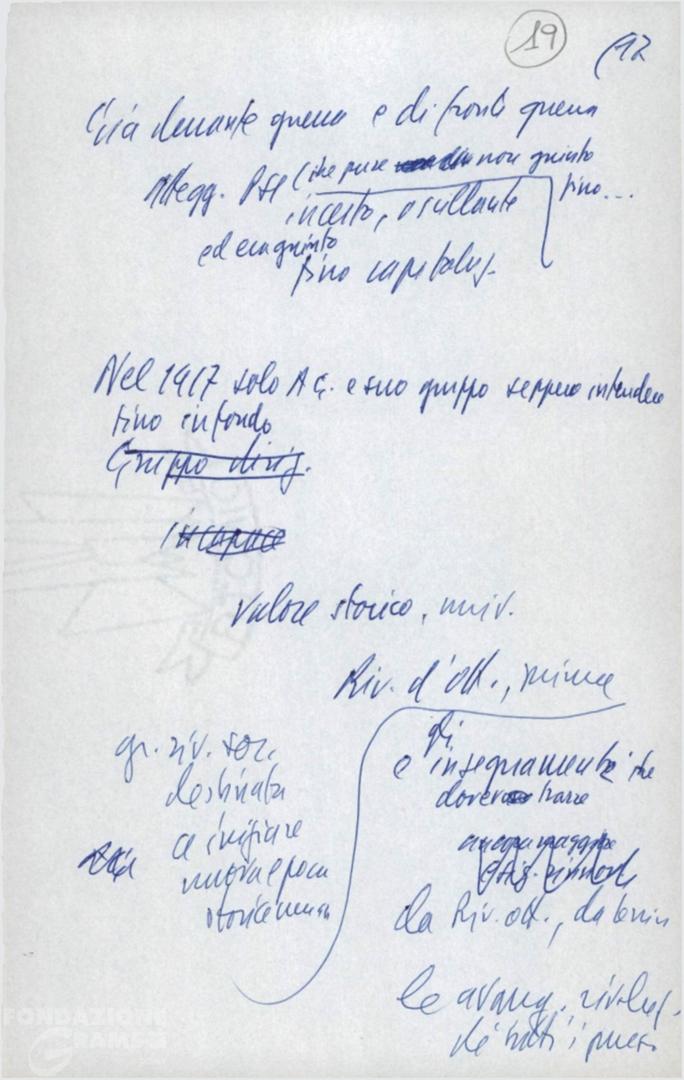 19
Già durante guerra e di fronte guerra
Attegg. PSI (che pure non giunto
fino...
incerto, oscillante
ed era giunto
fino
Nel 1917 solo A G. e suo gruppo seppero intendere
fino in fondo
Gruppo dirig.
incapace
valore storico, univ.
Riv. d'ott., prima
gr. riv. soc.
destinata
a iniziare
nuova epoca
storica
gli
e insegnamenti che
dovevano trarre
da Riv. ott., da Lenin
le avang. rivoluz.
di tutti i paesi
FONDAZIONE
GRAMSCI